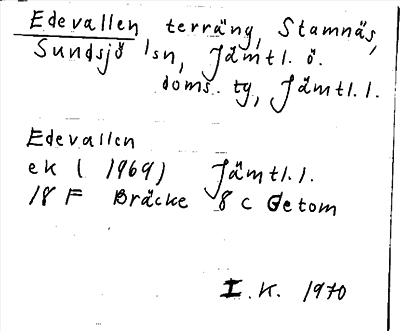 Edevallen terräng, Stamnäs,
Sundsjö lsn, Jämtl. ö.
doms. tg, Jämtl. l.
Edevallen
ek (1969) Jämtl. l.
18 F Bräcke 8 c Getom
I. K. 1970